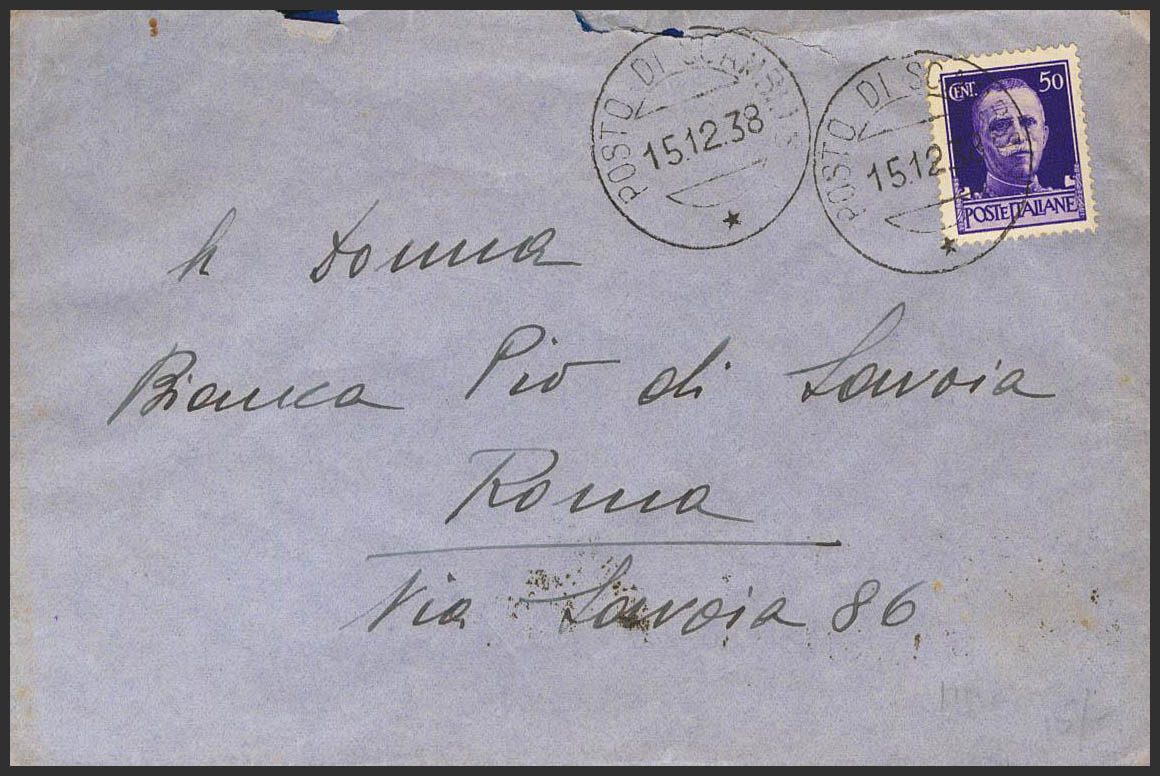 POSTO DI SCAMBIO
15.12.38
POSTO DI SC
15.12.38
CENT. 50
POSTE ITALIANE
A Donna
Bianca Pio di Savoia
Roma
Via Savoia 86